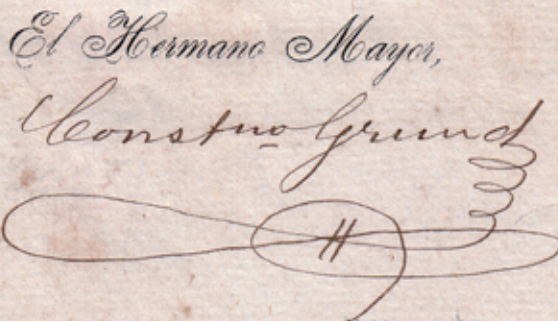 El Hermano Mayor,
Constno Grund